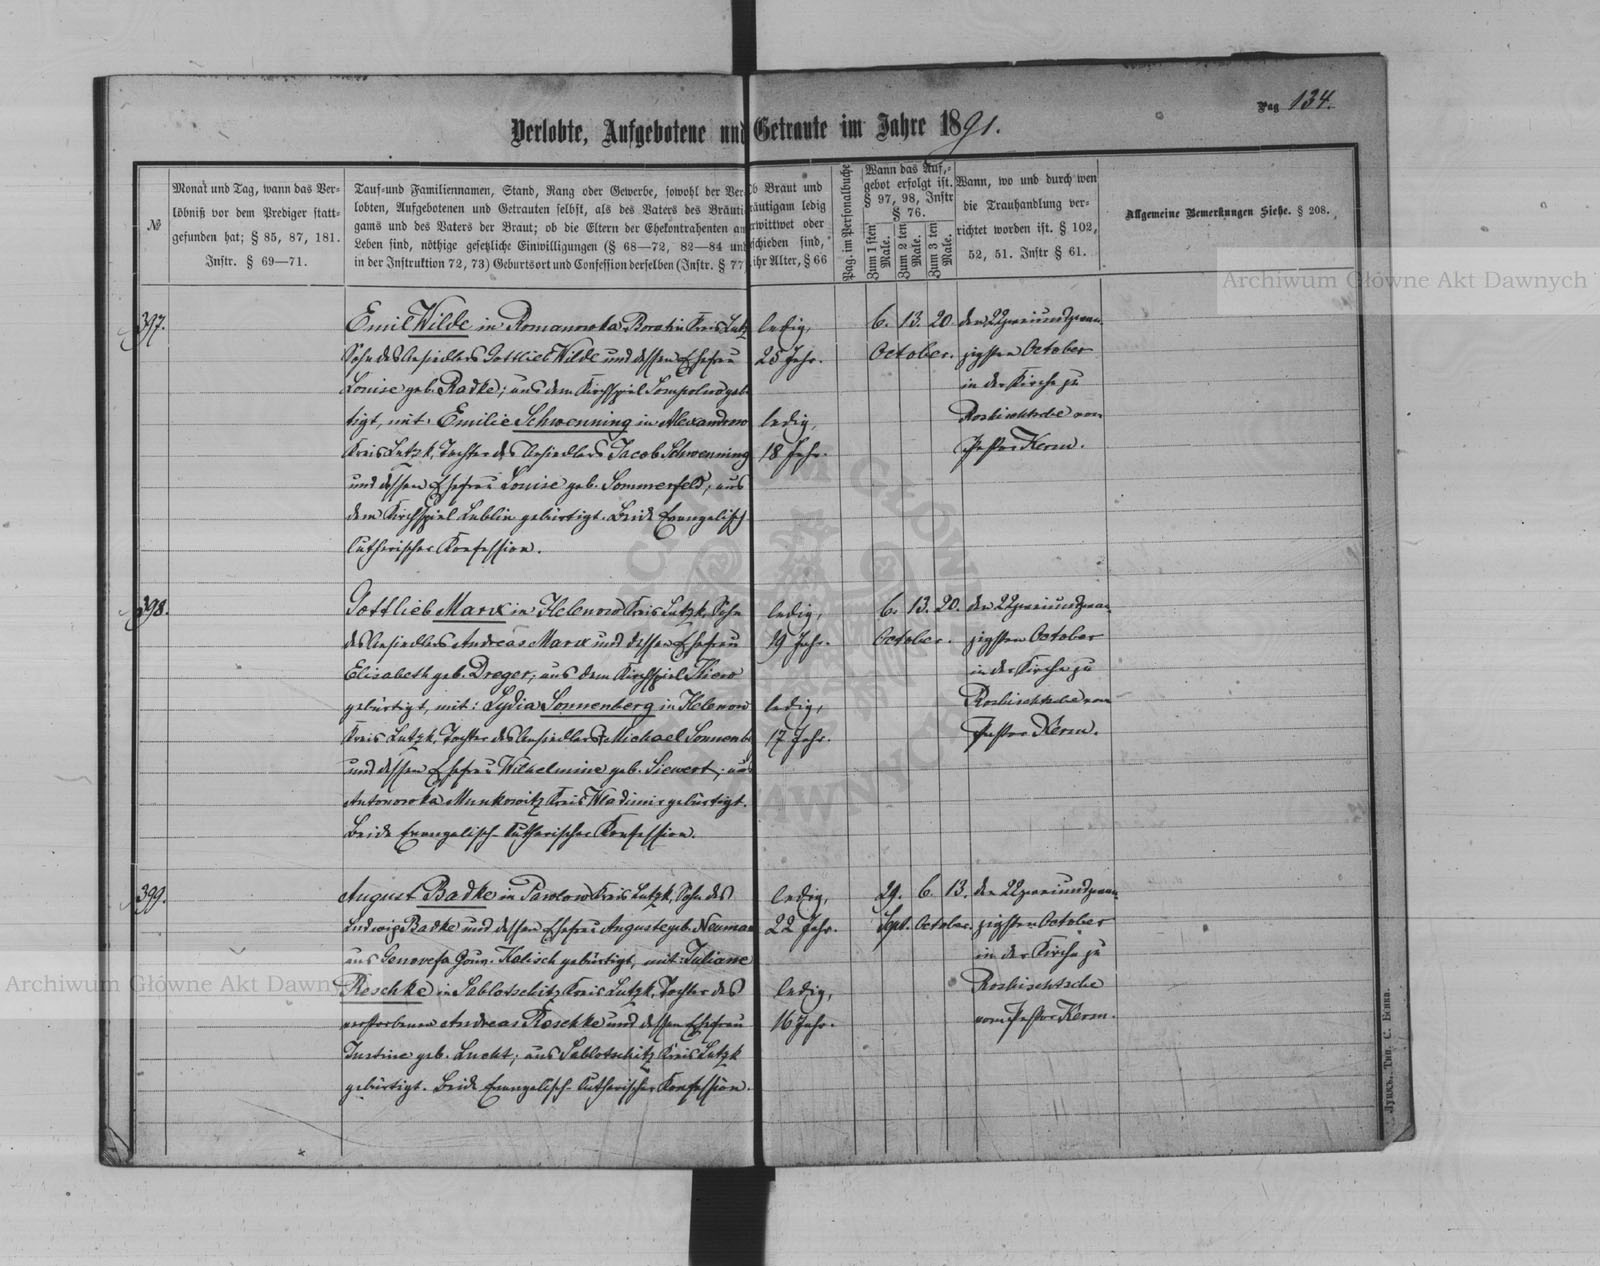 Pag 134.
Verlobte, Aufgebotene und Getraute im Jahre 1891.
№
Monat und Tag, wann das Ver-
löbniß vor dem Prediger statt-
gefunden hat; § 85, 87, 181.
Instr. § 69—71.
Tauf-und Familiennamen, Stand, Rang oder Gewerbe, sowohl der Ver
lobten, Aufgebotenen und Getrauten selbst, als des Vaters des Bräuti
gams und des Vaters der Braut; ob die Eltern der Ehekontrahenten am
Leben sind, nöthige gesetzliche Einwilligungen (§ 68—72, 82—84 und
in der Instruktion 72, 73) Geburtsort und Confession derselben (Instr. § 77)
b Braut und
räutigam ledig
rwittwet oder
schieden sind,
ihr Alter, § 66
Pag. im Personalbuche
Wann das Auf-
gebot erfolgt ist.
§ 97, 98, Instr
§ 76.
Zum 1sten Male.
Zum 2 ten Male.
Zum 3 ten Male.
Wann, wo und durch wen
die Trauhandlung ver-
richtet worden ist. § 102,
52, 51. Instr § 61.
Allgemeine Bemerkungen Siehe. § 208.
397.
Emil Wilde in Romanowka Boratin Kreis Lutz
Sohn des Ansiedlers Gottlieb Wilde und dessen Ehefrau
Louise geb. Radke; aus dem Kirchspiel Sompolno gebü
tigt, mit: Emilie Schwenning in Alexandrow
Kreis Lutzk, Tochter des Ansiedlers Jacob Schwenning
und dessen Ehefrau Louise geb. Sommerfeld, aus
dem Kirchspiel Lublin gebürtigt. Beide Evangelisch
lutherischer Konfession.
ledig,
25 Jahr.
ledig,
18 Jahr.
6. 13. 20.
October.
den 22 zweiundzwan
zigsten October
in der Kirche zu
Roshischtsche von
Pastor Kerm.
398.
Gottlieb Marx in Helenow Kreis Lutzk, Sohn
des Ansiedlers Andreas Marx und dessen Ehefrau
Elisabeth geb. Dreger; aus dem Kirchspiel Kiew
gebürtigt, mit: Lydia Sonnenberg in Helenow
Kreis Lutzk, Tochter des Ansiedlers Michael Sonnenb
und dessen Ehefrau Wilhelmine geb. Siewert; aus
Antonowka Munkowitz Kreis Wladimir gebürtigt.
Beide Evangelisch-lutherischer Konfession.
ledig,
19 Jahr.
ledig,
17 Jahr.
6. 13. 20.
October.
den 22 zweiundzwan
zigsten October
in der Kirche zu
Roshischtsche von
Pastor Kerm.
399.
August Badke in Pawlow Kreis Lutzk, Sohn des
Ludwig Badke und dessen Ehefrau Auguste geb. Neuman
aus Genowefa Gouv. Kalisch gebürtigt, mit: Juliane
Reschke in Sablotschitz Kreis Lutzk, Tochter des
verstorbenen Andreas Reschke und dessen Ehefrau
Justine geb. Lucht; aus Sablotschitz Kreis Lutzk
gebürtigt. Beide Evangelisch-lutherischer Konfession.
ledig,
22 Jahr.
ledig,
16 Jahr.
29. 6. 13.
Sept. October.
den 22 zweiundzwan
zigsten October
in der Kirche zu
Roshischtsche
vom Pastor Kerm.
Archiwum Główne Akt Dawnych
Archiwum Główne Akt Dawnych